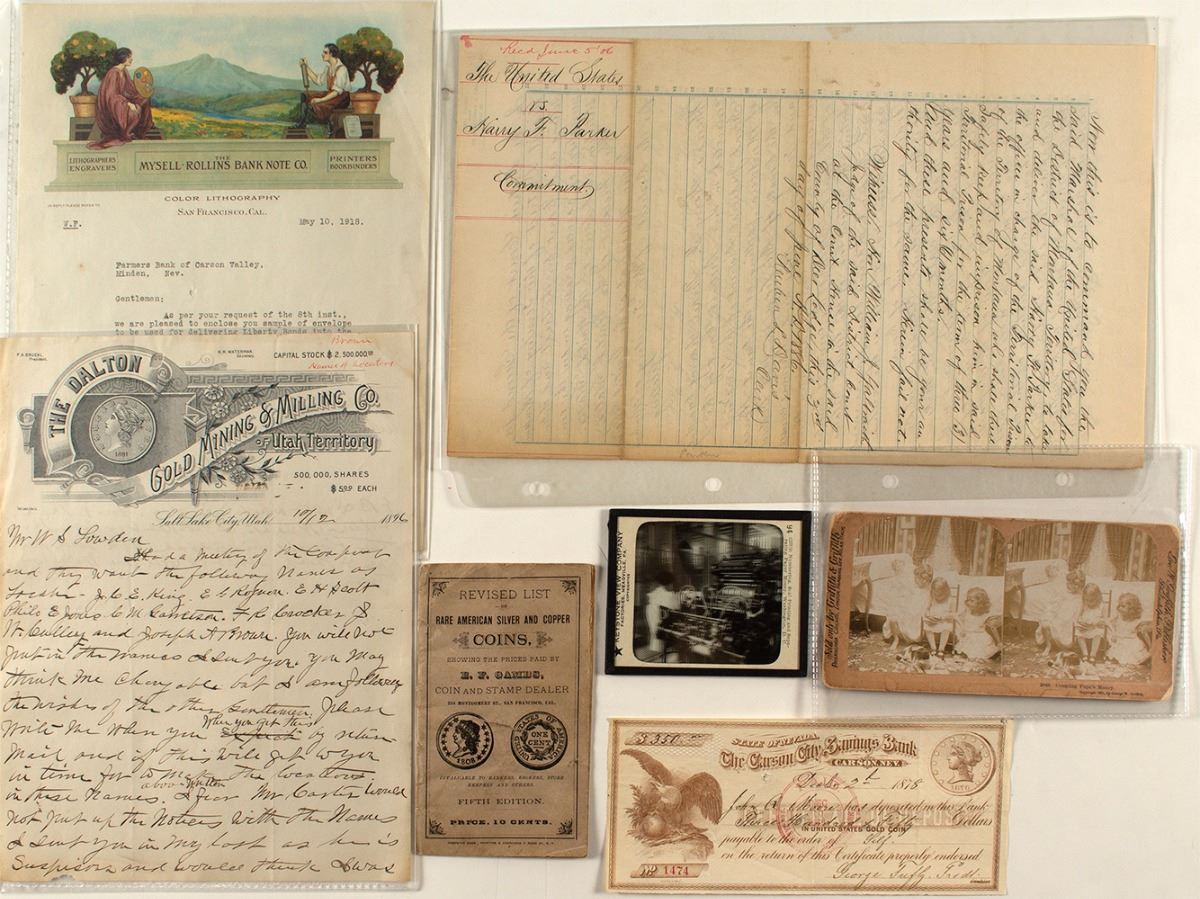 LITHOGRAPHERS
ENGRAVERS
THE
MYSELL-ROLLINS BANK NOTE CO.
PRINTERS
BOOKBINDERS
COLOR LITHOGRAPHY
SAN FRANCISCO, CAL.
IN REPLY PLEASE REFER TO
W.F.
May 10, 1918.
Farmers Bank of Carson Valley,
Minden, Nev.
Gentlemen;
As per your request of the 8th inst.,
we are pleased to enclose you sample of envelope
to be used for delivering Liberty Bonds into the
Rec'd June 5 '86
The United States
vs
Harry F. Parker
Commitment.
Now this is to command you the
said Marshal of the United States for
the District of Montana Territory to take
and deliver the said Harry F. Parker to
the officer in charge of the Territorial Prison
of the Territory of Montana who shall
safely keep and imprison him in said
Territorial Prison for the term of three (3)
years and six (6) months.
And these presents shall be your au
thority for the same. Herein fail not.
Witness, Hon William J. Galbraith
Judge of the said District Court
at the Court House in the said
County of Deer Lodge this 3rd
day of June A.D. 1886.
Clerk
P. A. BRUEHL,
President.
H. R. WATERMAN
CAPITAL STOCK $ 2,500,000.00
Brown
Names of Locators
THE DALTON
GOLD MINING & MILLING CO.
OF UTAH TERRITORY
1891
500,000, SHARES
$5.00 EACH
Salt Lake City, Utah, 10/12 1896
Mr W S Lowden
Had a Meeting of the Company
and they want the following Names as
Locators J. C. E. King, E H Scott
F. R. Crocker, J
W. Culley and Joseph A Brown. You will not
put in the Names I sent you. You May
think me changable but I am following
the wishes of the other Gentlemen. Please
Write Me when you
When you get this
by return
Mail and if this will get to you
in time for to Make the locations
above Written
in these Names. I fear Mr Carter would
not put up the Notices with the Names
I sent you in My last as he is
Suspicious and would think I was
REVISED LIST
OF
RARE AMERICAN SILVER AND COPPER
COINS,
SHOWING THE PRICES PAID BY
E. F. GAMBS,
COIN AND STAMP DEALER
1808
UNITED STATES OF AMERICA
ONE CENT
INVALUABLE TO BANKERS, BROKERS, STORE
KEEPERS AND OTHERS.
FIFTH EDITION.
PRICE, 10 CENTS.
KEYSTONE VIEW COMPANY
MEADVILLE, PA.
Sold only by Griffith & Griffith
Counting Papa's Money.
$ 350.00
STATE OF NEVADA.
The Carson City Savings Bank
CARSON, NEV.
1876
Dec. 2d 1878
has deposited in this Bank
Three Hundred & Fifty Dollars
IN UNITED STATES GOLD COIN
payable to the order of Self
on the return of this Certificate properly endorsed.
No 1474
George Tufly, Prest.